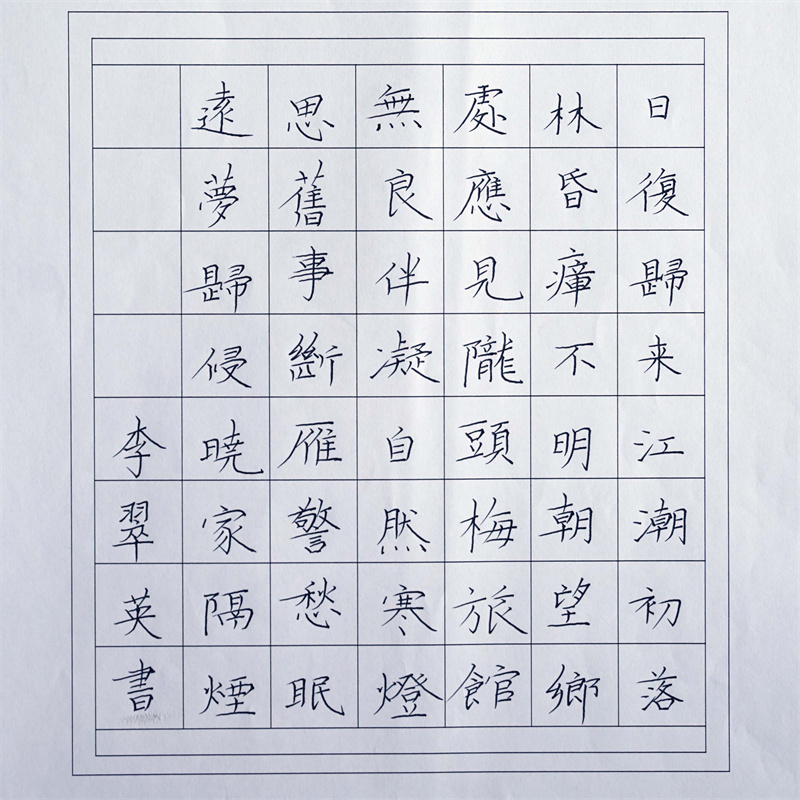 日復歸来江潮初落
林昏瘴不明朝望鄉
處應見隴頭梅旅館
無良伴凝自然寒燈
思舊事斷雁警愁眠
遠夢歸侵曉家隔煙
李翠英書